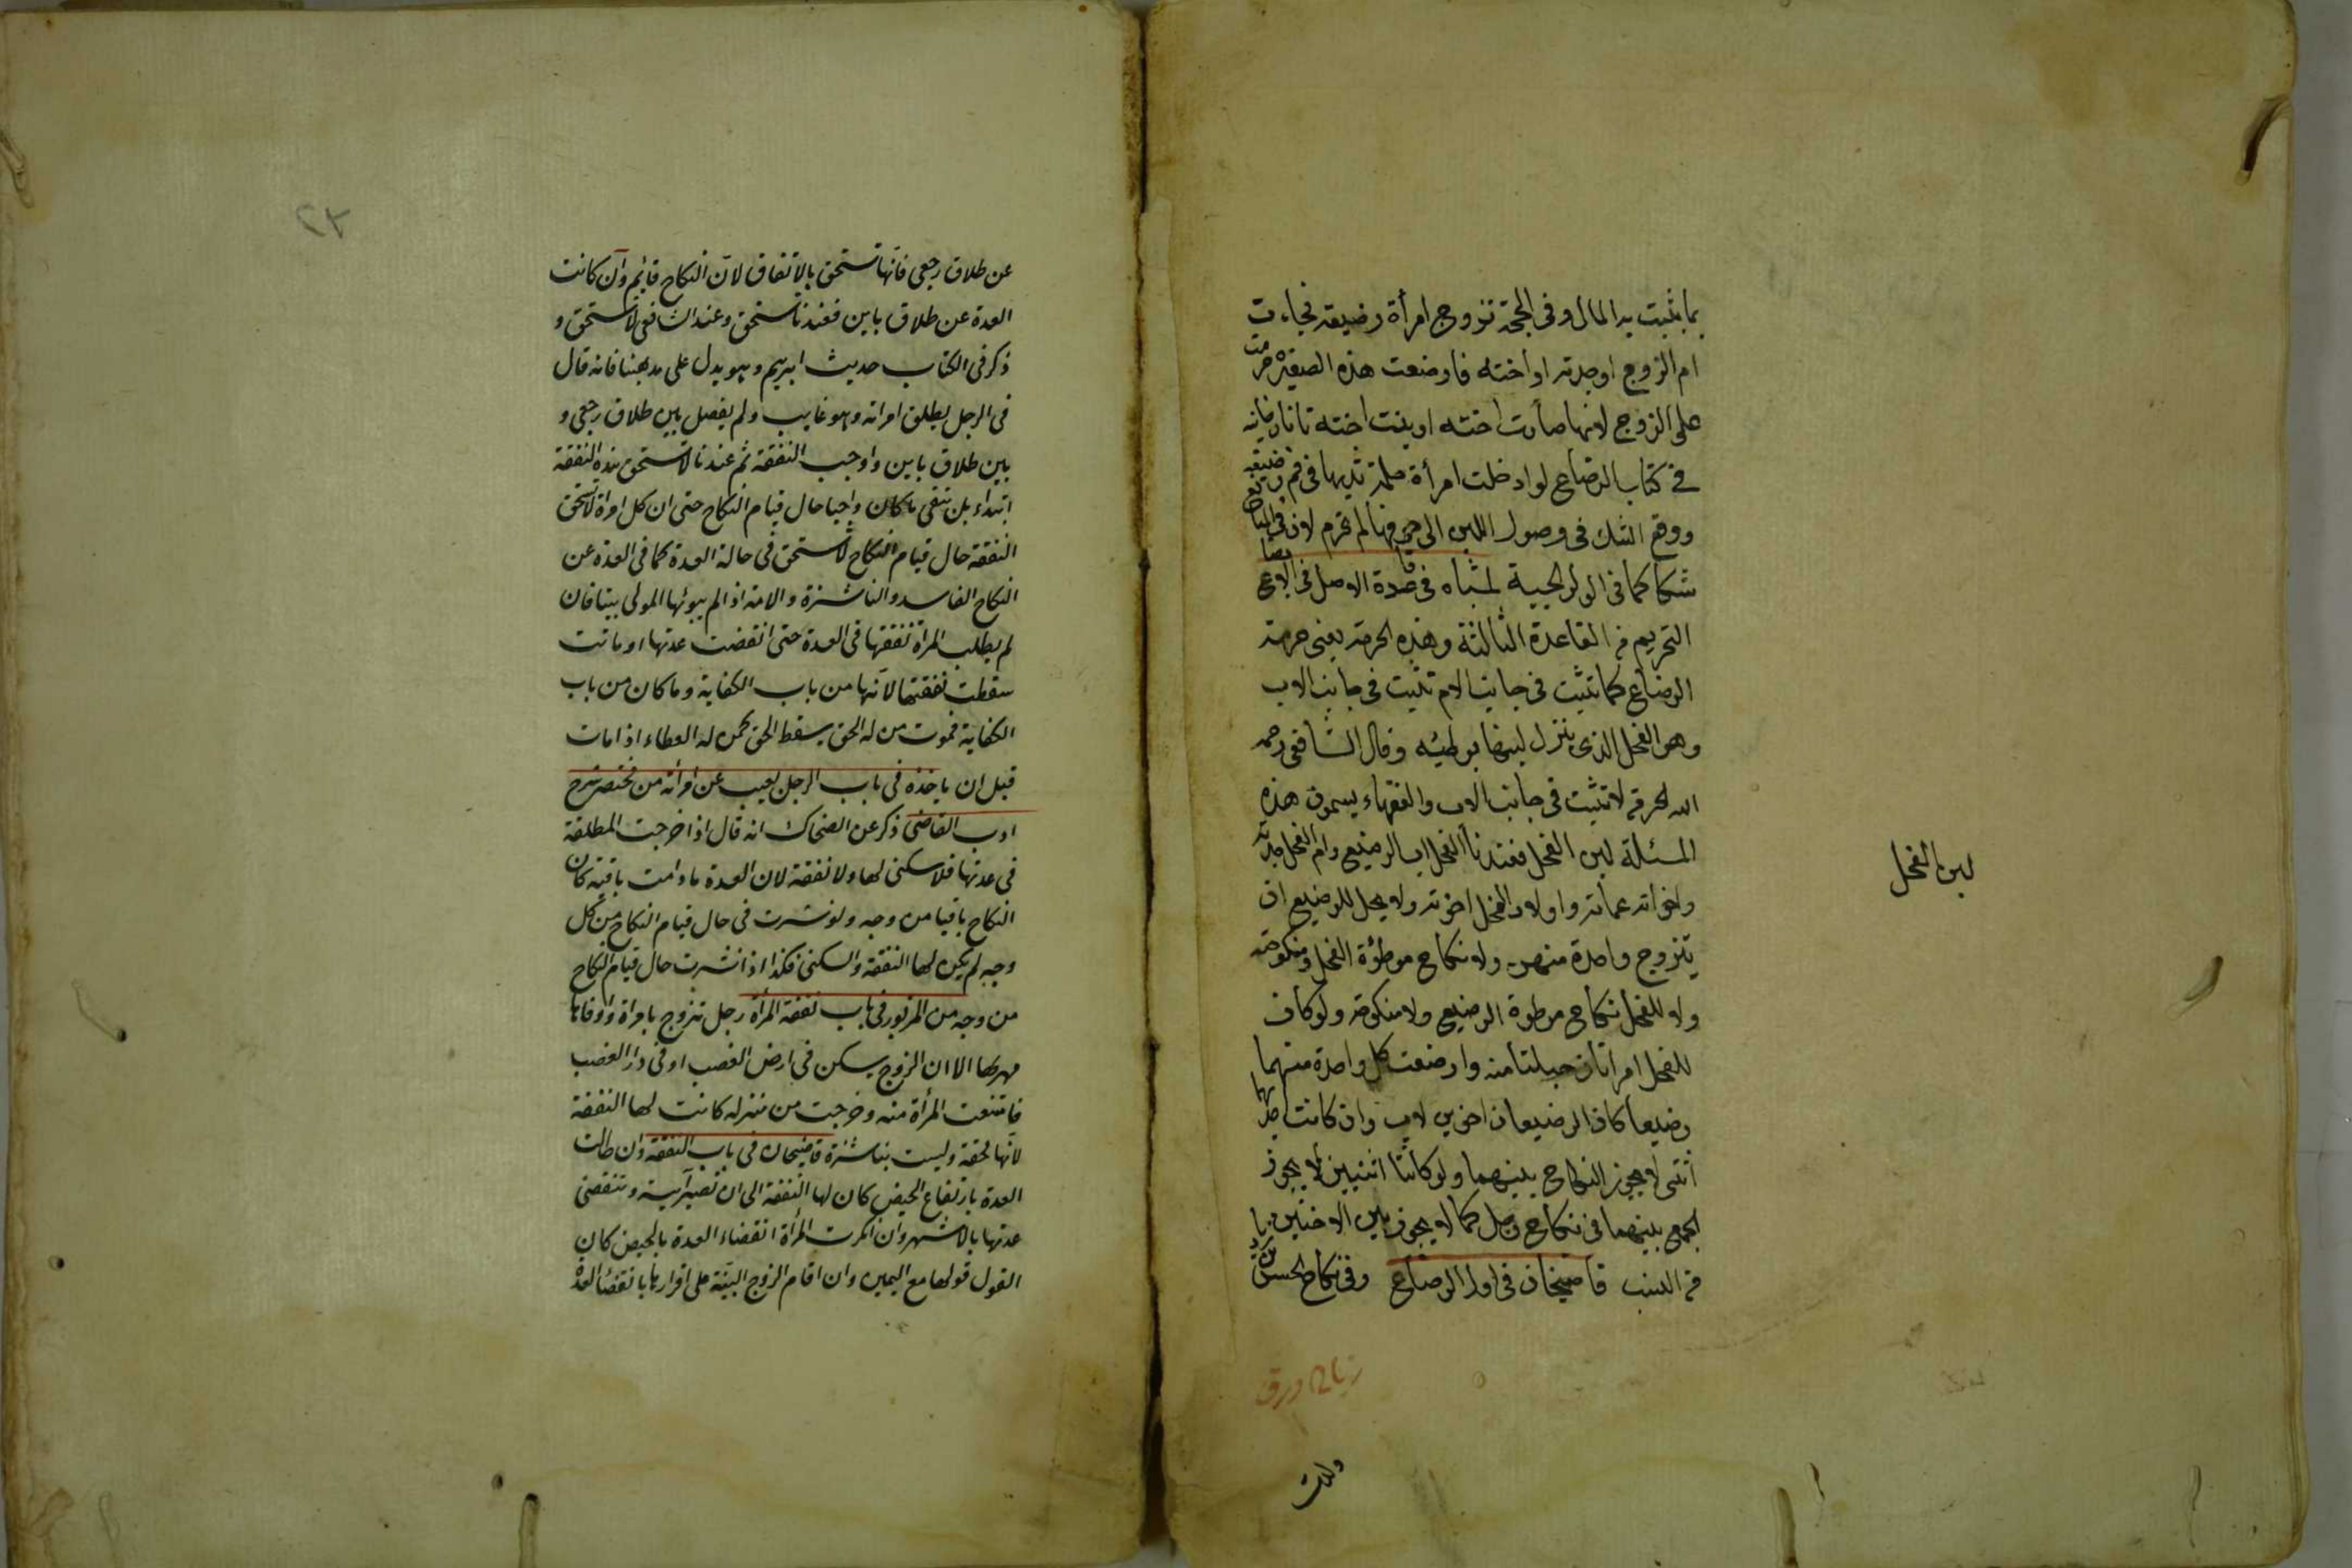 بما يثبت به المال وفى الحجة تزوج امرأة رضيعة فجاءت
ام الزوج او جدته او اخته فارضعت هذه الصغيرة حرمت
على الزوج لانها صارت اخته او بنت اخته تاتارخانيه
فى كتاب الرضاع لو ادخلت امرأة حلمة ثديها فى فم رضيعه
ووقع الشك فى وصول اللبن الى جوفها لم تحرم لان فى المانع
شكا كما فى الولوالجية اشباه فى قاعدة الاصل فى الابضاع
التحريم من القاعدة الثالثة وهذه الحرمة يعنى حرمة
الرضاع كما تثبت فى جانب الام تثبت فى جانب الاب
وهو الفحل الذى ينزل لبنها بوطئه وقال الشافعى رحمه
الله الحرمة لا تثبت فى جانب الاب والفقهاء يسمون هذه
المسئلة لبن الفحل فعندنا الفحل اب الرضيع وام الفحل جدته
واخواته عماته واولاد الفحل اخوته ولا يحل للرضيع ان
يتزوج واحدة منهن ولا نكاح موطؤة الفحل ومنكوحته
ولا للفحل نكاح موطوة الرضيع ولا منكوحته ولو كان
للفحل امرأتان حبلتا منه وارضعت كل واحدة منهما
رضيعا كان الرضيعان اخوين لاب وان كانت احديهما
انثى لا يجوز النكاح بينهما ولو كانتا انثيين لا يجوز
الجمع بينهما فى نكاح رجل كما لا يجوز بين الاختين
من النسب قاضيخان فى اول الرضاع وفى نكاح الحسن بن زياد
لبن الفحل
ورق
عن طلاق رجعى فانها تستحق بالاتفاق لان النكاح قايم وان كانت
العدة عن طلاق باين فعندنا تستحق وعند الشافعى لا تستحق و
ذكر فى الكتاب حديث ابرهيم وهو يدل على مذهبنا فانه قال
فى الرجل يطلق امراته وهو غايب ولم يفصل بين طلاق رجعى و
بين طلاق باين واوجب النفقة ثم عندنا لا تستحق هذه النفقة
ابتداء بل تبقى ما كان واجبا حال قيام النكاح حتى ان كل امراة لا تستحق
النفقة حال قيام النكاح لا تستحق فى حالة العدة كما فى العدة عن
النكاح الفاسد والناشزة والامة اذا لم يبوئها المولى بيتا فان
لم يطلب المرأة نفقتها فى العدة حتى انقضت عدتها او ماتت
سقطت نفقتها لانها من باب الكفاية وما كان من باب
الكفاية فموت من له الحق يسقط الحق كمن له العطاء اذا مات
قبل ان ياخذه فى باب الرجل يغيب عن امرأته من مختصر شرح
ادب القاضى ذكر عن الضحاك انه قال اذا خرجت المطلقة
فى عدتها فلا سكنى لها ولا نفقة لان العدة ما دامت باقية كان
النكاح باقيا من وجه ولو نشزت فى حال قيام النكاح من كل
وجه لم يكن لها النفقة والسكنى فكذا اذا نشزت حال قيام النكاح
من وجه من المزبور فى باب نفقة المرأة رجل تزوج بامرأة واوفاها
مهرها الا ان الزوج يسكن فى ارض الغصب او فى دار الغصب
فامتنعت المرأة منه وخرجت من منزله كانت لها النفقة
لانها محقة وليست بناشزة قاضيخان فى باب النفقة وان طالت
العدة بارتفاع الحيض كان لها النفقة الى ان تصير آيسة وتنقضى
عدتها بالاشهر وان انكرت المرأة انقضاء العدة بالحيض كان
القول قولها مع اليمين وان اقام الزوج البينة على اقرارها بانقضاء العدة